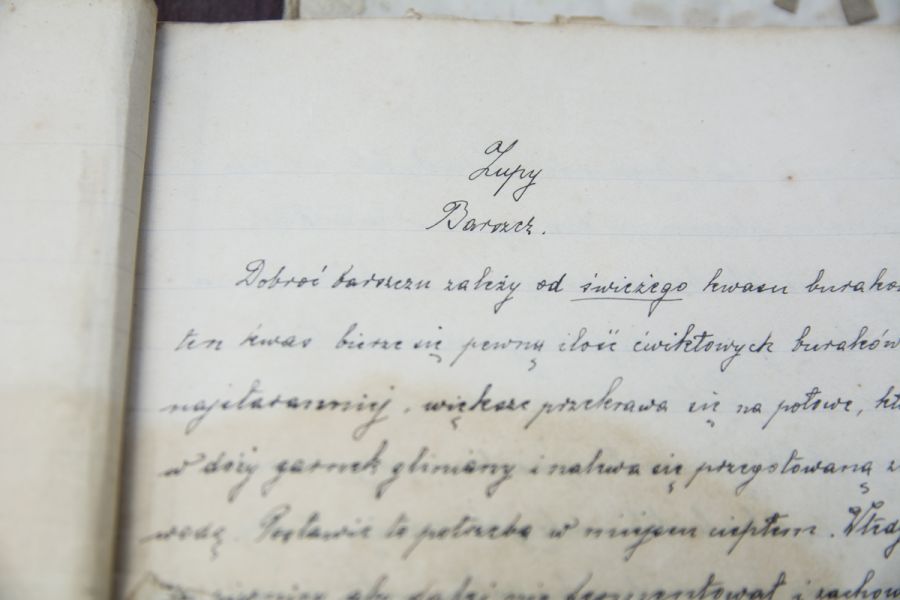 Zupy
Barszcz.
Dobroć barszczu zależy od świeżego kwasu burako
ten kwas bierze się pewną ilość ćwikłowych buraków
najstaranniej, większe przekrawa się na połowę, kt
w duży garnek gliniany i nalewa się przegotowaną z
wodą. Postawić to potrzeba w miejscu ciepłem.
aby dalej nie fermentował i zachow